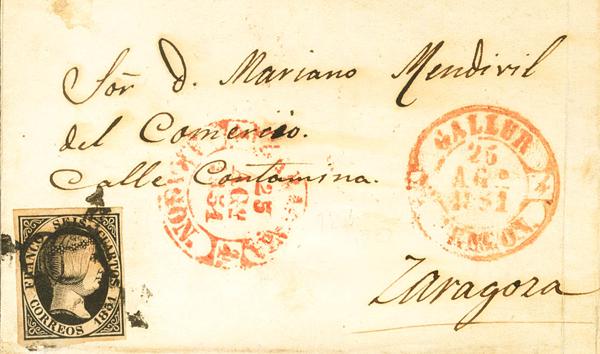 Sor. D. Mariano Mendivil
del Comercio.
Calle Contamina.
Zaragoza
GALLUR
25
AGº
1851
ARAGON
25
AGº
51
FRANCO SEIS CUARTOS
CORREOS 1851